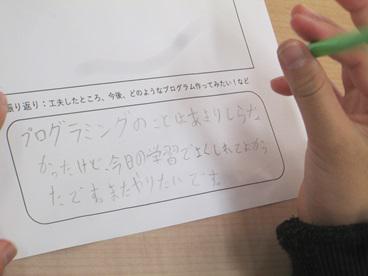 振り返り：工夫したところ、今後、どのようなプログラム作ってみたい！など
プログラミングのことはあまりしらな
かったけど、今日の学習でよくしれてよかっ
たです。またやりたいです。